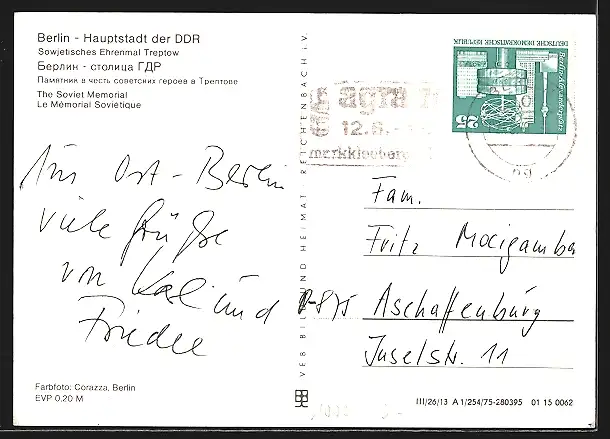 Berlin - Hauptstadt der DDR
Sowjetisches Ehrenmal Treptow
Берлин - столица ГДР
Памятник в честь советских героев в Трептове
The Soviet Memorial
Le Mémorial Soviétique
Aus Ost-Berlin
viele Grüße
von Karl und
Friedel
Farbfoto: Corazza, Berlin
EVP 0.20 M
VEB BILD UND HEIMAT REICHENBACH i.V.
agra
12.6.-
markkleeberg
DEUTSCHE DEMOKRATISCHE REPUBLIK
25
Fam.
Fritz Mocigamba
D-875 Aschaffenburg
Inselstr. 11
III/26/13 A 1/254/75-280395 01 15 0062